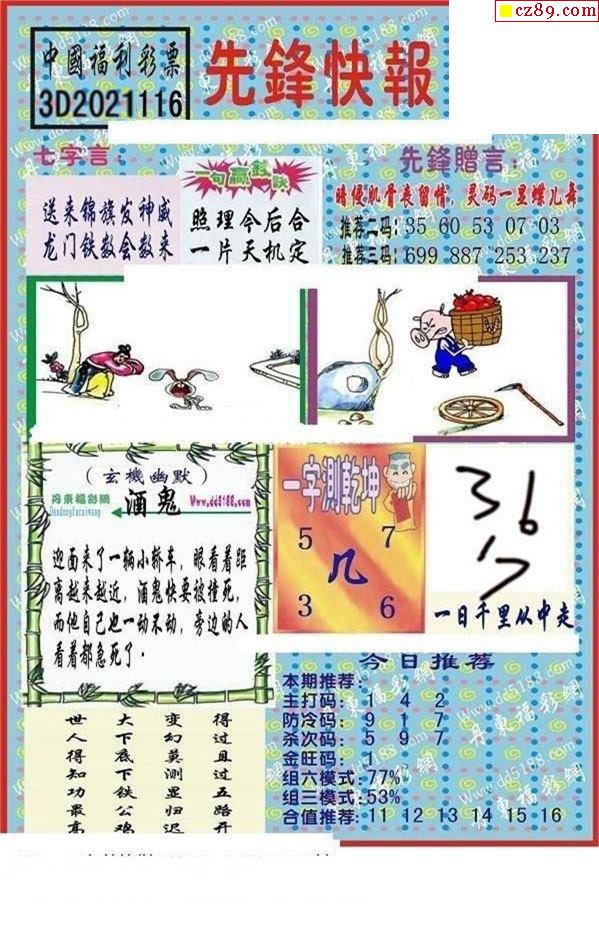 cz89.com
中國福利彩票
3D2021116
先鋒快報
七字言：
送来锦旗发神威
龙门铁数会数来
一句赢錢訣
照理今后合
一片天机定
先鋒贈言：
暗侵肌骨丧留情，灵码一显蝶儿舞
推荐二码：35 60 53 07 03
推荐三码：699 887 253 237
（玄機幽默）
丹東福彩網
Dandongfucaiwang
酒鬼
Www.dd5188.com
迎面来了一辆小轿车，眼看着距
离越来越近，酒鬼快要被撞死，
而他自己也一动不动，旁边的人
看着都急死了。
一字測乾坤
5 7
几
3 6
36
17
一日千里从中走
今日推荐
本期推荐：
主打码： 1 4 2
防冷码： 9 1 7
杀次码： 5 9 7
金旺码： 1
组六模式：77%
组三模式：53%
合值推荐：11 12 13 14 15 16
世人得知功最高
大下底下铁公鸡
变幻莫测显归迟
得过且过五路开
Www.dd5188.com
丹東福彩網